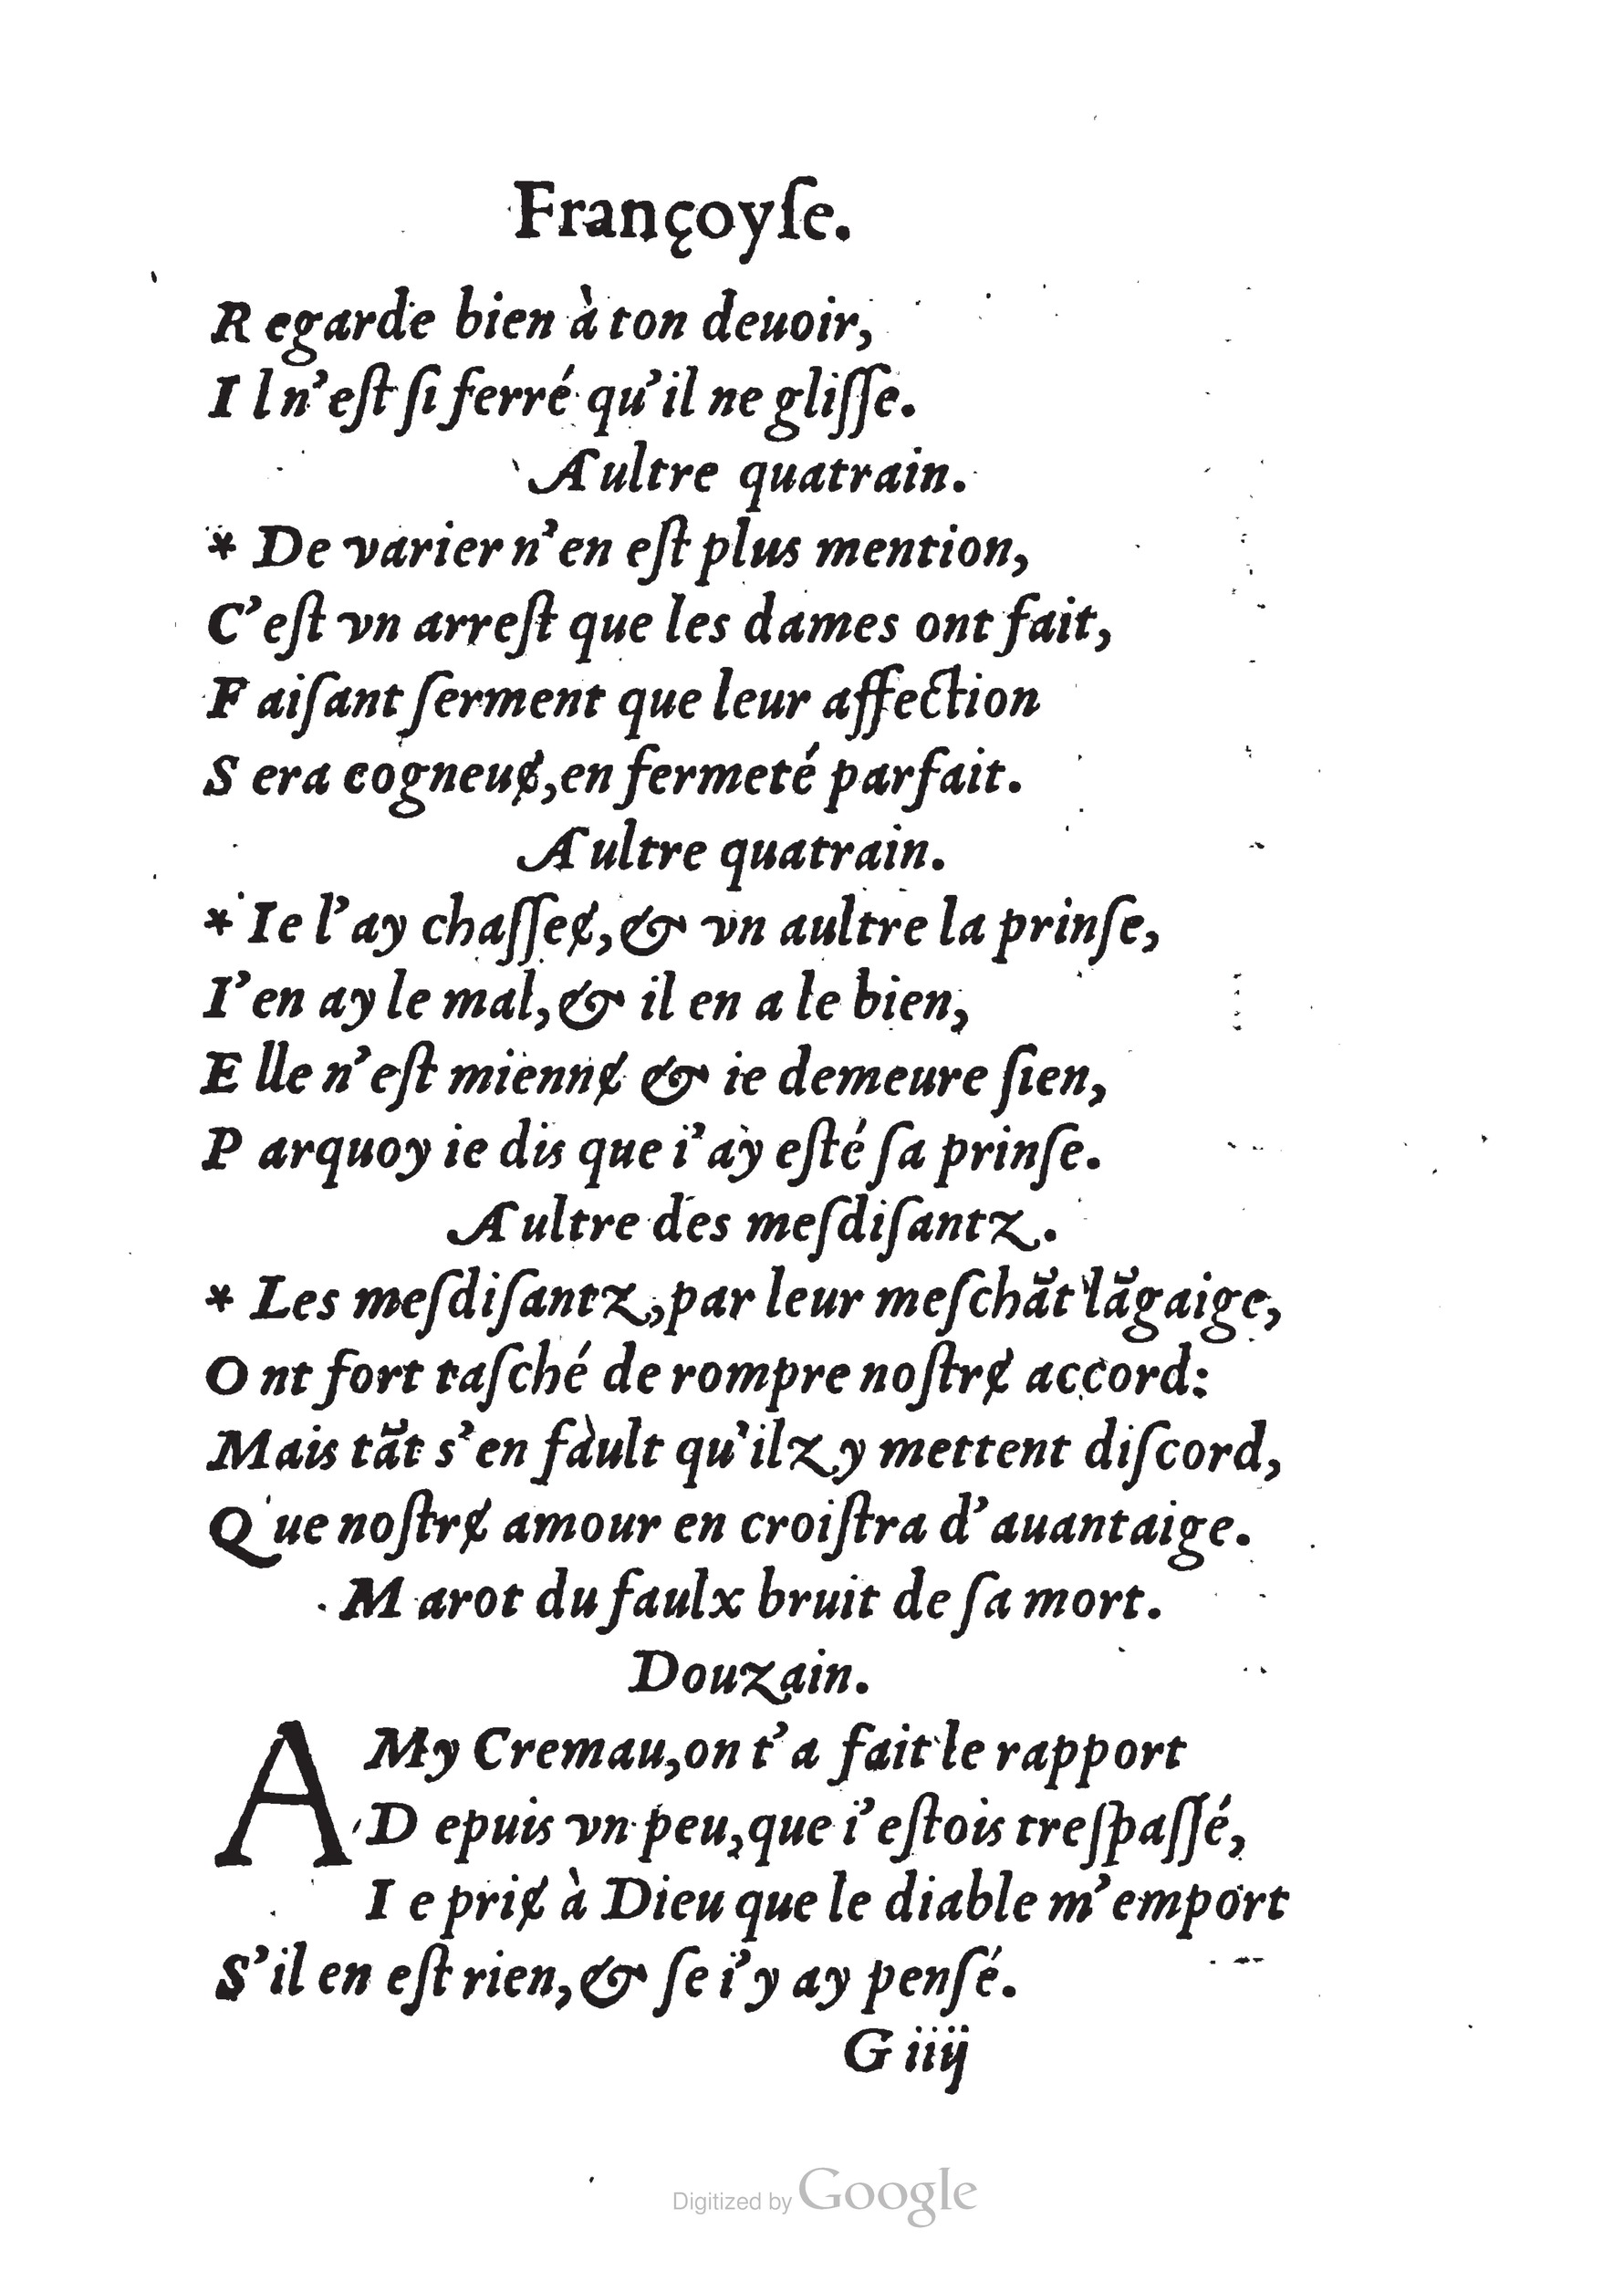 Françoyſe.
Regarde bien à ton deuoir,
Il n'eſt ſi ferré qu'il ne gliſſe.
Aultre quatrain.
* De varier n'en eſt plus mention,
C'eſt vn arreſt que les dames ont fait,
Faiſant ſerment que leur affection
Sera cogneuɇ, en fermeté parfait.
Aultre quatrain.
* Ie l'ay chaſſeɇ, & vn aultre la prinſe,
I'en ay le mal, & il en a le bien,
Elle n'eſt miennɇ & ie demeure ſien,
Parquoy ie dis que i'ay eſté ſa prinſe.
Aultre des meſdiſantz.
* Les meſdiſantz, par leur meſchãt lãgaige,
Ont fort taſché de rompre noſtrɇ accord:
Mais tãt s'en fault qu'ilz y mettent diſcord,
Que noſtrɇ amour en croiſtra d'auantaige.
Marot du faulx bruit de ſa mort.
Douzain.
AMy Cremau, on t'a fait le rapport
Depuis vn peu, que i'eſtois treſpaſſé,
Ie priɇ à Dieu que le diable m'emport
S'il en eſt rien, & ſe i'y ay penſé.
G iiij
Digitized by Google